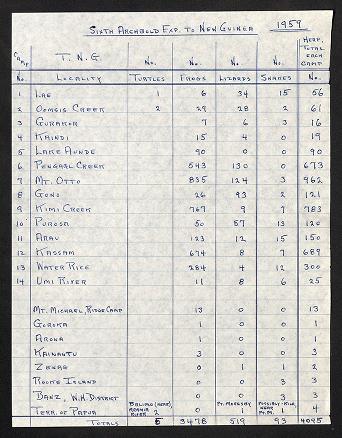 Sixth Archbold Exp. to New Guinea 1959
Camp T. N. G. No. No. No. No. Herp. Total Each Camp
No. Locality Turtles Frogs Lizards Snakes No.
1 Lae 1 6 34 15 56
2 Oomsis Creek 2 29 28 2 61
3 Gurakor 7 6 3 16
4 Kaindi 15 4 0 19
5 Lake Aunde 90 0 0 90
6 Pengagl Creek 543 130 0 673
7 Mt. Otto 835 124 3 962
8 Gono 26 93 2 121
9 Kimi Creek 767 9 7 783
10 Purosa 50 57 13 120
11 Arau 123 12 15 150
12 Kassam 674 8 7 689
13 Water Rice 284 4 12 300
14 Umi River 11 8 6 25
Mt. Michael, Ridge Camp 13 0 0 13
Goroka 1 0 0 1
Arona 1 0 0 1
Kainantu 3 0 0 3
Zenag 0 1 1 2
Rooke Island 0 0 3 3
Banz, W.H. District 0 0 3 3
Terr. of Papua Balimo (near), River 2 0 Pt. Moresby 1 Possibly near Pt. M. 1 4
Totals 5 3478 519 93 4095